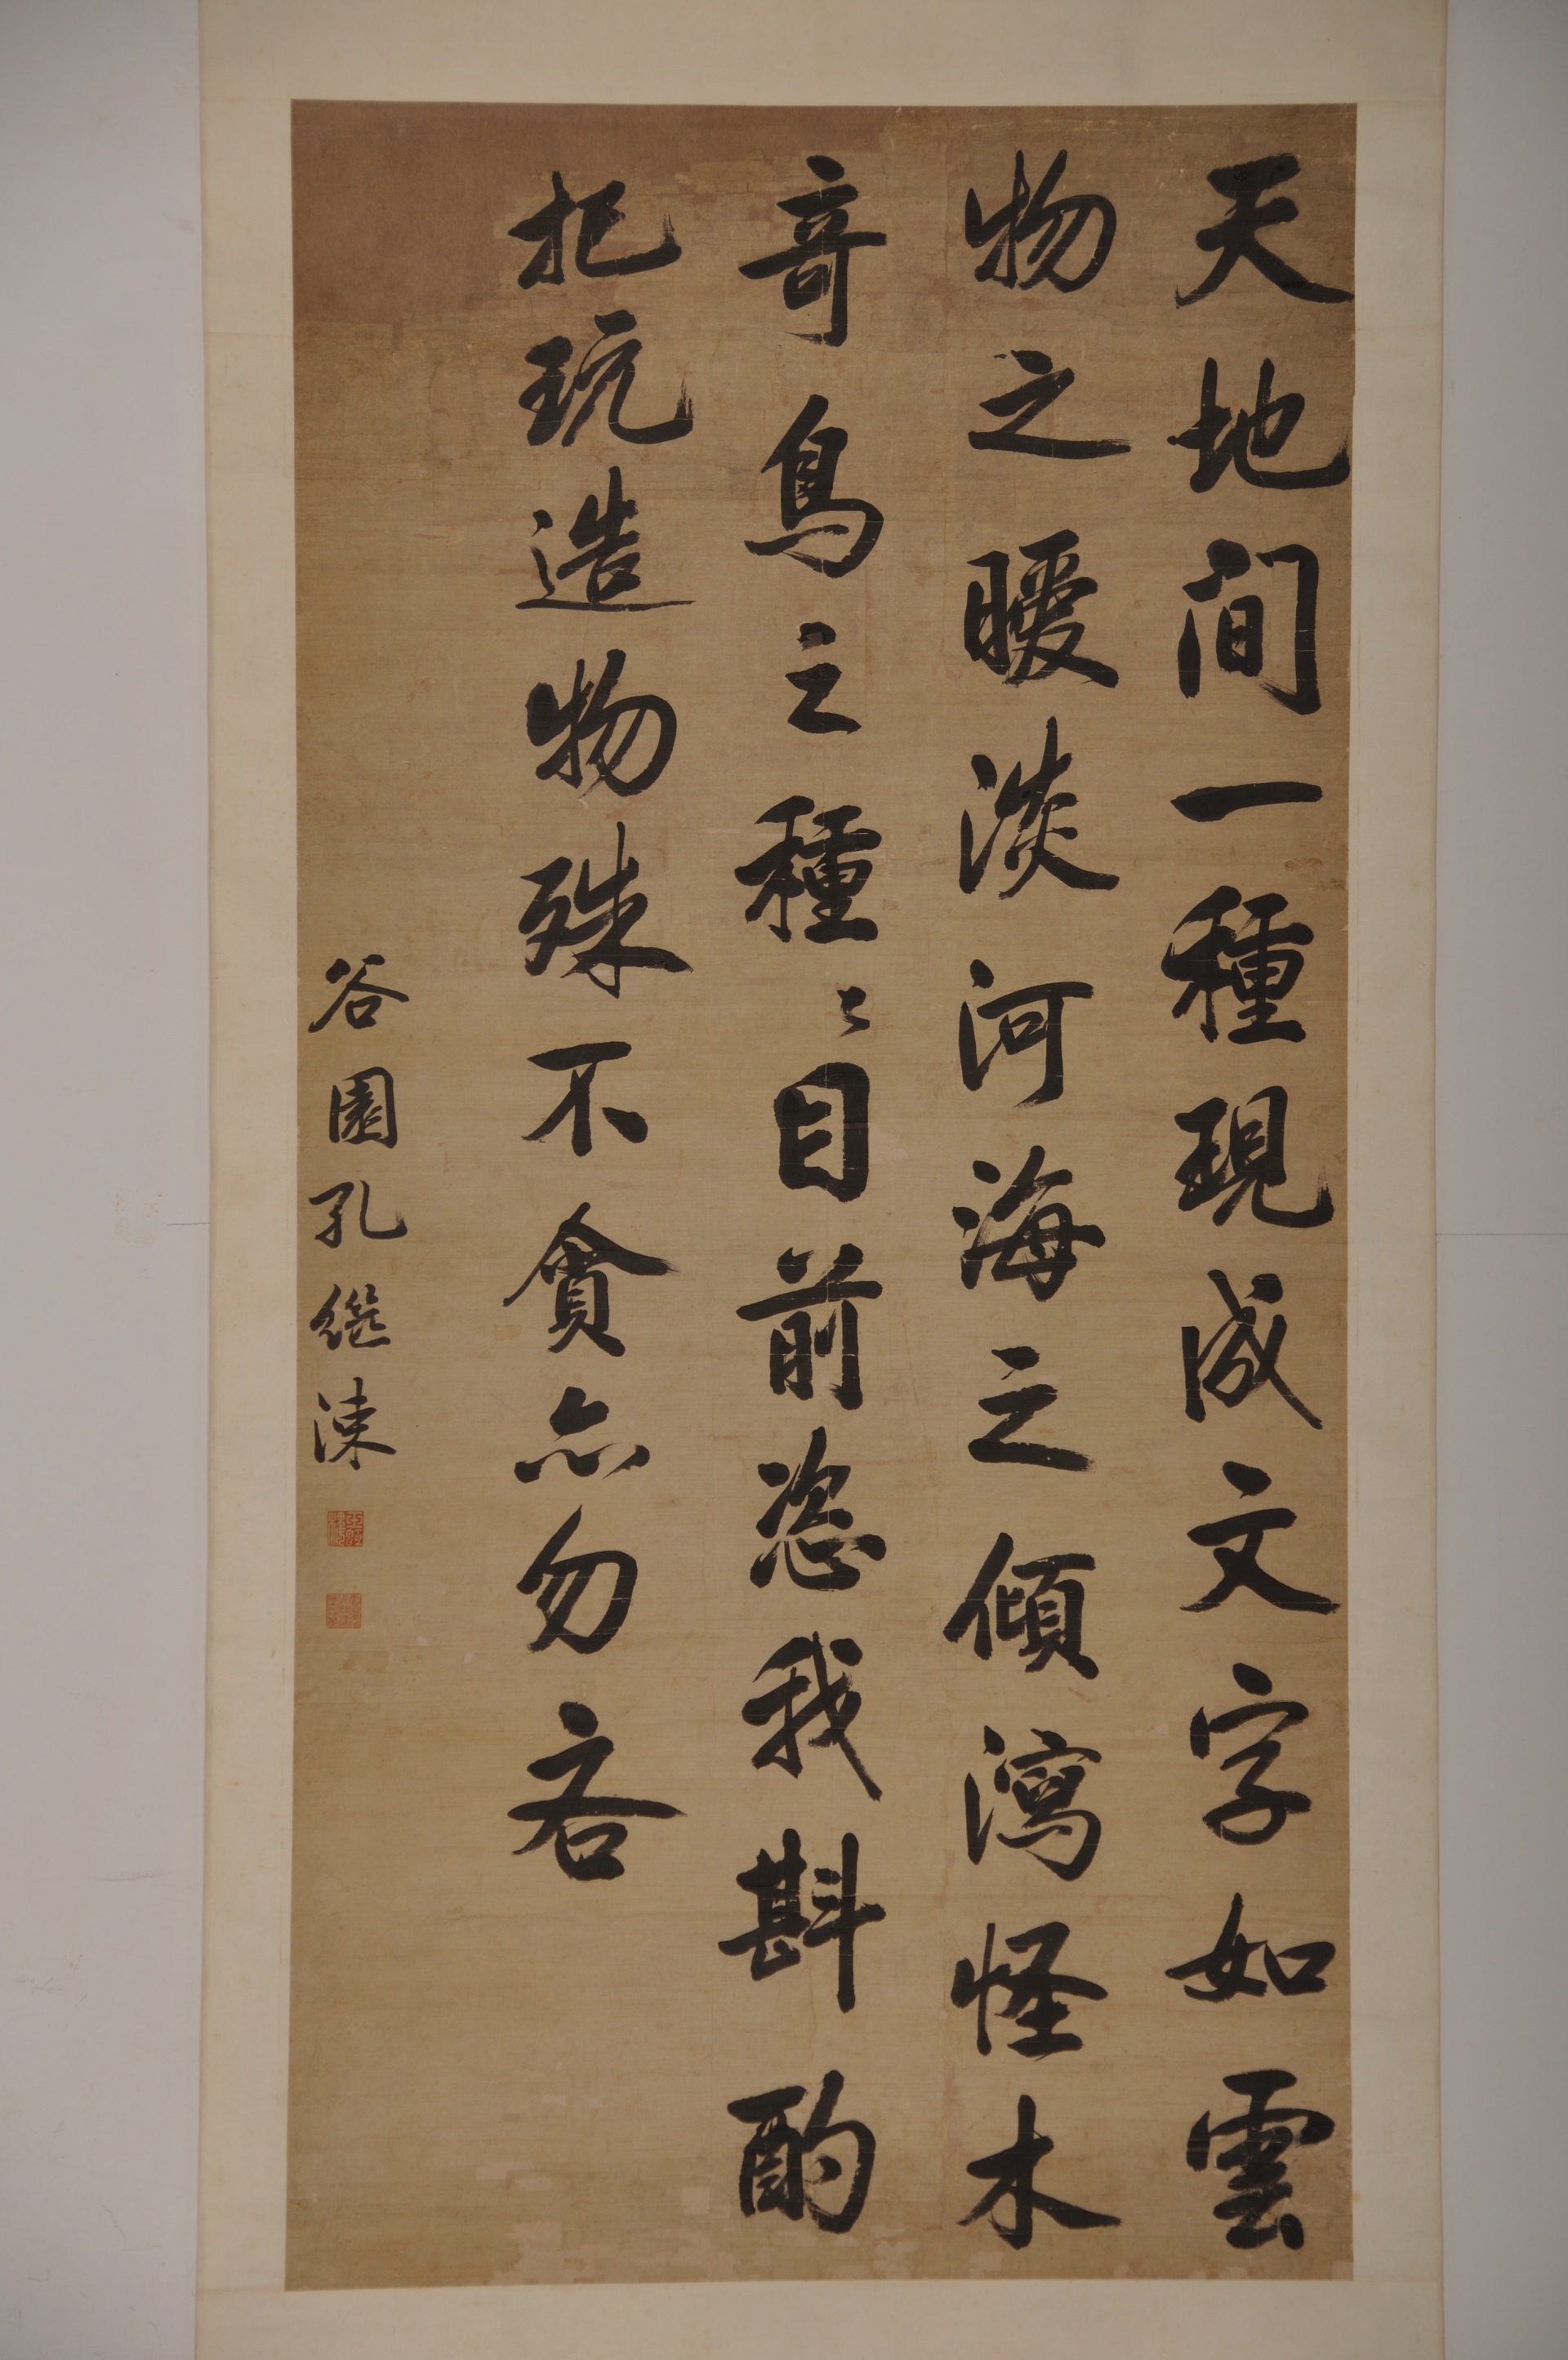 天地间一種現成文字如雲
物之曖淡河海之傾瀉怪木
竒鳥之種〻目前恣我斟酌
把玩造物殊不貪亦勿吝
谷園孔継涑